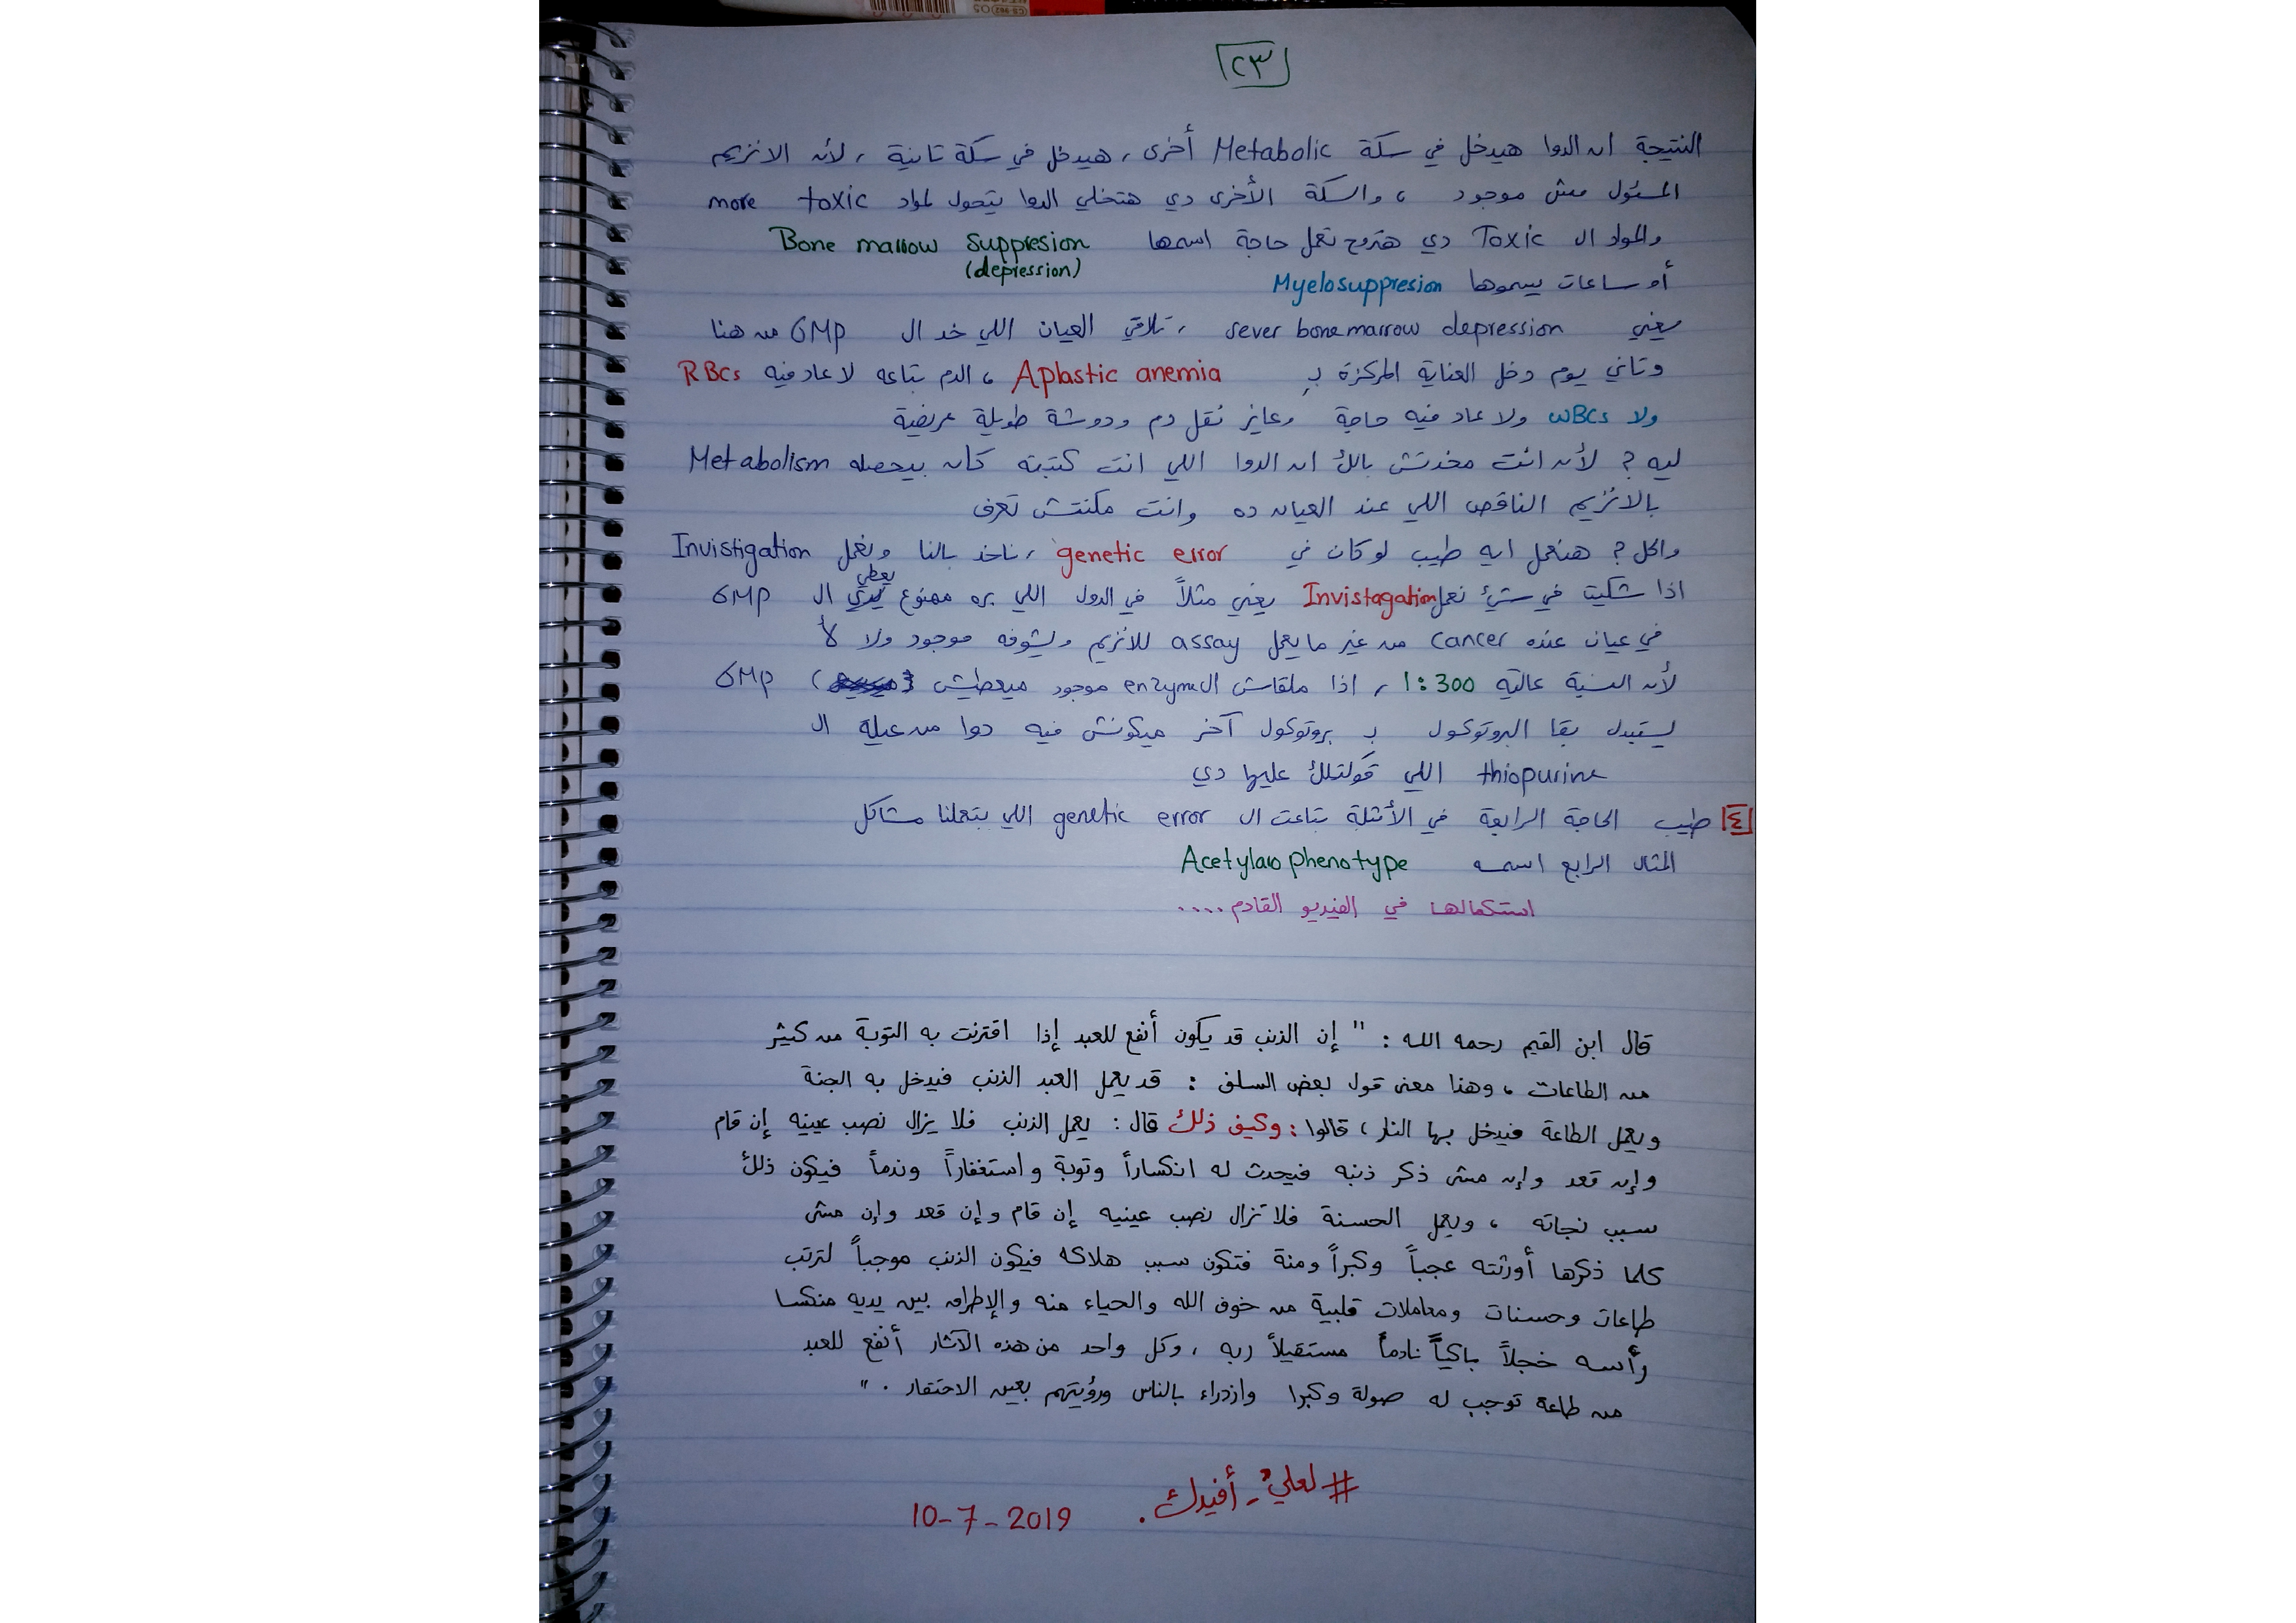 ٢٣
النتيجة ان الدوا هيدخل في سكة Metabolic أخرى ، هيدخل في سكة تانية ، لأن الانزيم
المسئول مش موجود ، والسكة الأخرى دي هتخلي الدوا يتحول لمواد more toxic
والمواد ال Toxic دي هتروح تعمل حاجة اسمها Bone marrow suppresion
(depression)
أو ساعات يسموها Myelosuppresion
يعني sever bone marrow depression ، تلاقي العيان اللي خد ال 6MP من هنا
وتاني يوم دخل العناية المركزة بـ Aplastic anemia ، الدم بتاعه لا عاد فيه RBCs
ولا WBCs ولا عاد فيه حاجة وعايز نقل دم ودوشة طويلة عريضة
ليه ? لأن انت مخدتش بالك ان الدوا اللي انت كتبته كان بيحصله Metabolism
بالانزيم الناقص اللي عند العيان ده وانت مكنتش تعرف
والحل ? هنعمل ايه طيب لو كان في genetic error ، ناخد بالنا ونعمل Invistigation
اذا شكيت في شئ نعمل Invistagation يعني مثلاً في الدول اللي بره ممنوع يعطي ال 6MP
في عيان عنده cancer من غير ما يعمل assay للانزيم ويشوفه موجود ولا لأ
لأن النسبة عالية 1:300 ، اذا ملقاش ال enzyme موجود ميعطيش 6MP
يستبدل بقا البروتوكول بـ بروتوكول آخر ميكونش فيه دوا من عيلة ال
thiopurine اللي قولتلك عليها دي
٤ طيب الحاجة الرابعة في الأمثلة بتاعت ال genetic error اللي بتعملنا مشاكل
المثال الرابع اسمه Acetylaro phenotype
استكمالها في الفيديو القادم ....
قال ابن القيم رحمه الله : " إن الذنب قد يكون أنفع للعبد إذا اقترنت به التوبة من كثير
من الطاعات ، وهذا معنى قول بعض السلف : قد يعمل العبد الذنب فيدخل به الجنة
ويعمل الطاعة فيدخل بها النار ، قالوا : وكيف ذلك قال : يعمل الذنب فلا يزال نصب عينيه إن قام
وإن قعد وإن مشى ذكر ذنبه فيحدث له انكساراً وتوبة واستغفاراً وندماً فيكون ذلك
سبب نجاته ، ويعمل الحسنة فلا تزال نصب عينيه إن قام وإن قعد وإن مشى
كلما ذكرها أورثته عجباً وكبراً ومنة فتكون سبب هلاكه فيكون الذنب موجباً لترتب
طاعات وحسنات ومعاملات قلبية من خوف الله والحياء منه والإطراق بين يديه منكسا
رأسه خجلاً باكياً نادماً مستقيلاً ربه ، وكل واحد من هذه الآثار أنفع للعبد
من طاعة توجب له صولة وكبرا وازدراء بالناس ورؤيتهم بعين الاحتقار . "
#لعلي_أفيدك . 10-7-2019